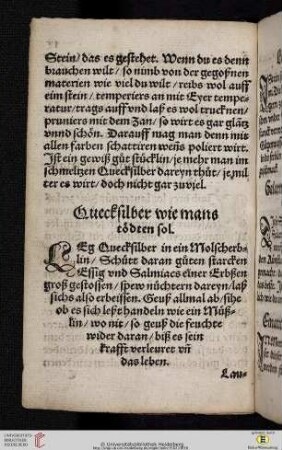 Stein/ das es gestehet. Wenn du es denn
brauchen wilt/ so nimb von der gegoßnen
materien wie viel du wilt/ reibs wol auff
eim stein/ temperiers an mit Eyer tempe-
ratur/ trags auff vnd laß es wol trucknen/
pruniers mit dem Zan/ so wirt es gar glatz
vnnd schön. Darauff mag man denn mit
allen farben schattiren wens poliert wirt.
Ist ein gewiß gůt stücklin/ je mehr man im
schmeltzen Quecksilber dareyn thůt/ je mil
ter es wirt/ doch nicht gar zuviel.
Quecksilber wie mans
tödten sol.
LEg Quecksilber in ein Molscherb-
lin/ Schütt daran gůten starcken
Essig vnd Salmiacs einer Erbßen
groß gestossen/ spew nüchtern dareyn/ laß
sichs also erbeissen. Geuß allmal ab/ sihe
ob es sich leßt handeln wie ein Můß-
lin/ wo nit/ so geuß die feuchte
wider daran/ biß es sein
krafft verleuret vñ
das leben.
Lau-
UNIVERSITÄTS-
BIBLIOTHEK
HEIDELBERG
© Universitätsbibliothek Heidelberg